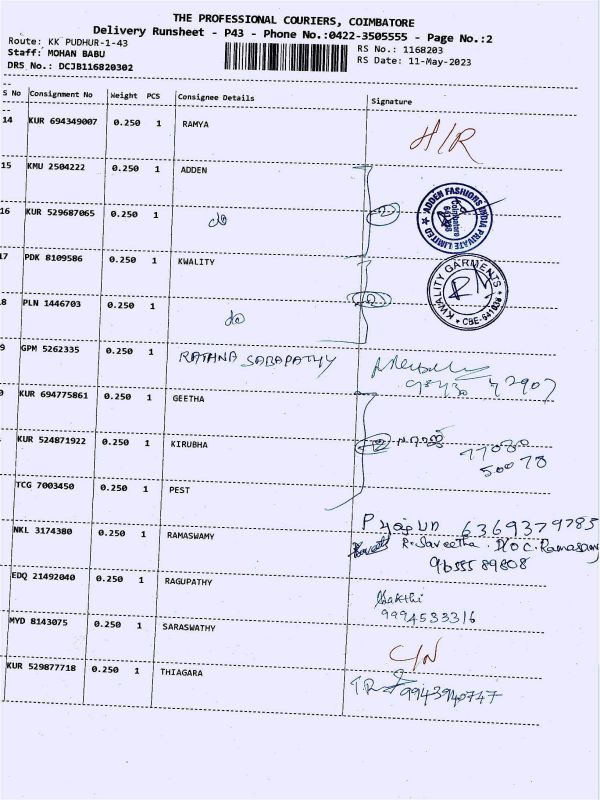 THE PROFESSIONAL COURIERS, COIMBATORE
Delivery Runsheet - P43 - Phone No.:0422-3505555 - Page No.:2
Route: KK PUDHUR-1-43
RS No.: 1168203
Staff: MOHAN BABU
RS Date: 11-May-2023
DRS No.: DCJB116820302
S No Consignment No Weight PCS Consignee Details Signature
14 KUR 694349007 0.250 1 RAMYA H/R
15 KMU 2504222 0.250 1 ADDEN
ADDEN FASHIONS INDIA PRIVATE LIMITED
Coimbatore
16 KUR 529687065 0.250 1 do
17 PDK 8109586 0.250 1 KWALITY
KWALITY GARMENTS
8 PLN 1446703 0.250 1 do
9 GPM 5262335 0.250 1 RATHNA SABAPATHY
0 KUR 694775861 0.250 1 GEETHA
KUR 524871922 0.250 1 KIRUBHA 77080
50078
TCG 7003450 0.250 1 PEST
6369379785
NKL 3174380 0.250 1 RAMASWAMY R. Saveetha. D/o C. Ramasamy
9655589808
EDQ 21492040 0.250 1 RAGUPATHY Sakthi
9994533316
MYD 8143075 0.250 1 SARASWATHY C/N
KUR 529877718 0.250 1 THIAGARA T.R 9943940747